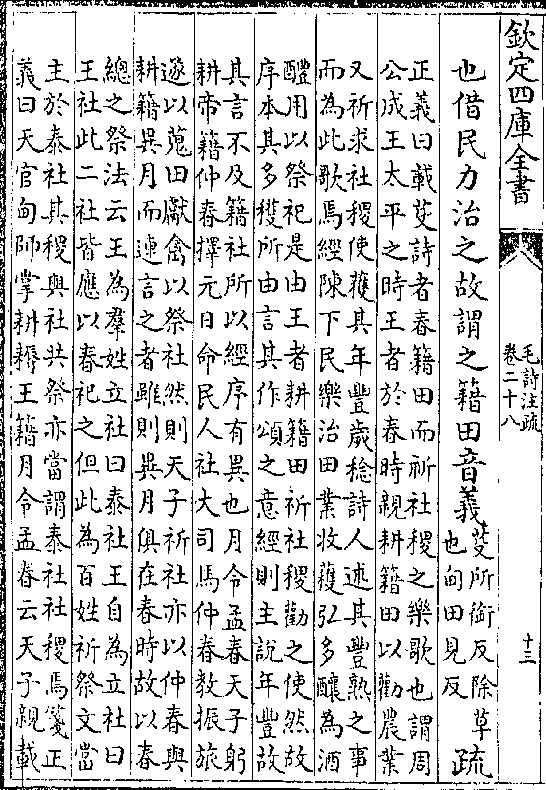 欽定四庫全書
毛詩注疏
卷二十八
十三
也借民力治之故謂之籍田音義芟所銜反除草
也甸田見反
疏
正義曰載芟詩者春籍田而祈社稷之樂歌也謂周
公成王太平之時王者於春時親耕籍田以勸農業
又祈求社稷使獲其年豐歲稔詩人述其豐熟之事
而為此歌焉經陳下民樂治田業收穫弘多釀為酒
醴用以祭祀是由王者耕籍田祈社稷勸之使然故
序本其多穫所由言其作頌之意經則主說年豐故
其言不及籍社所以經序有異也月令孟春天子躬
耕帝籍仲春擇元日命民人社大司馬仲春教振旅
遂以蒐田獻禽以祭社然則天子祈社亦以仲春與
耕籍異月而連言之者雖則異月俱在春時故以春
總之祭法云王為羣姓立社曰泰社王自為立社曰
王社此二社皆應以春祀之但此為百姓祈祭文當
主於泰社其稷與社共祭亦當謂泰社社稷焉箋正
義曰天官甸師掌耕耨王籍月令孟春云天子親載